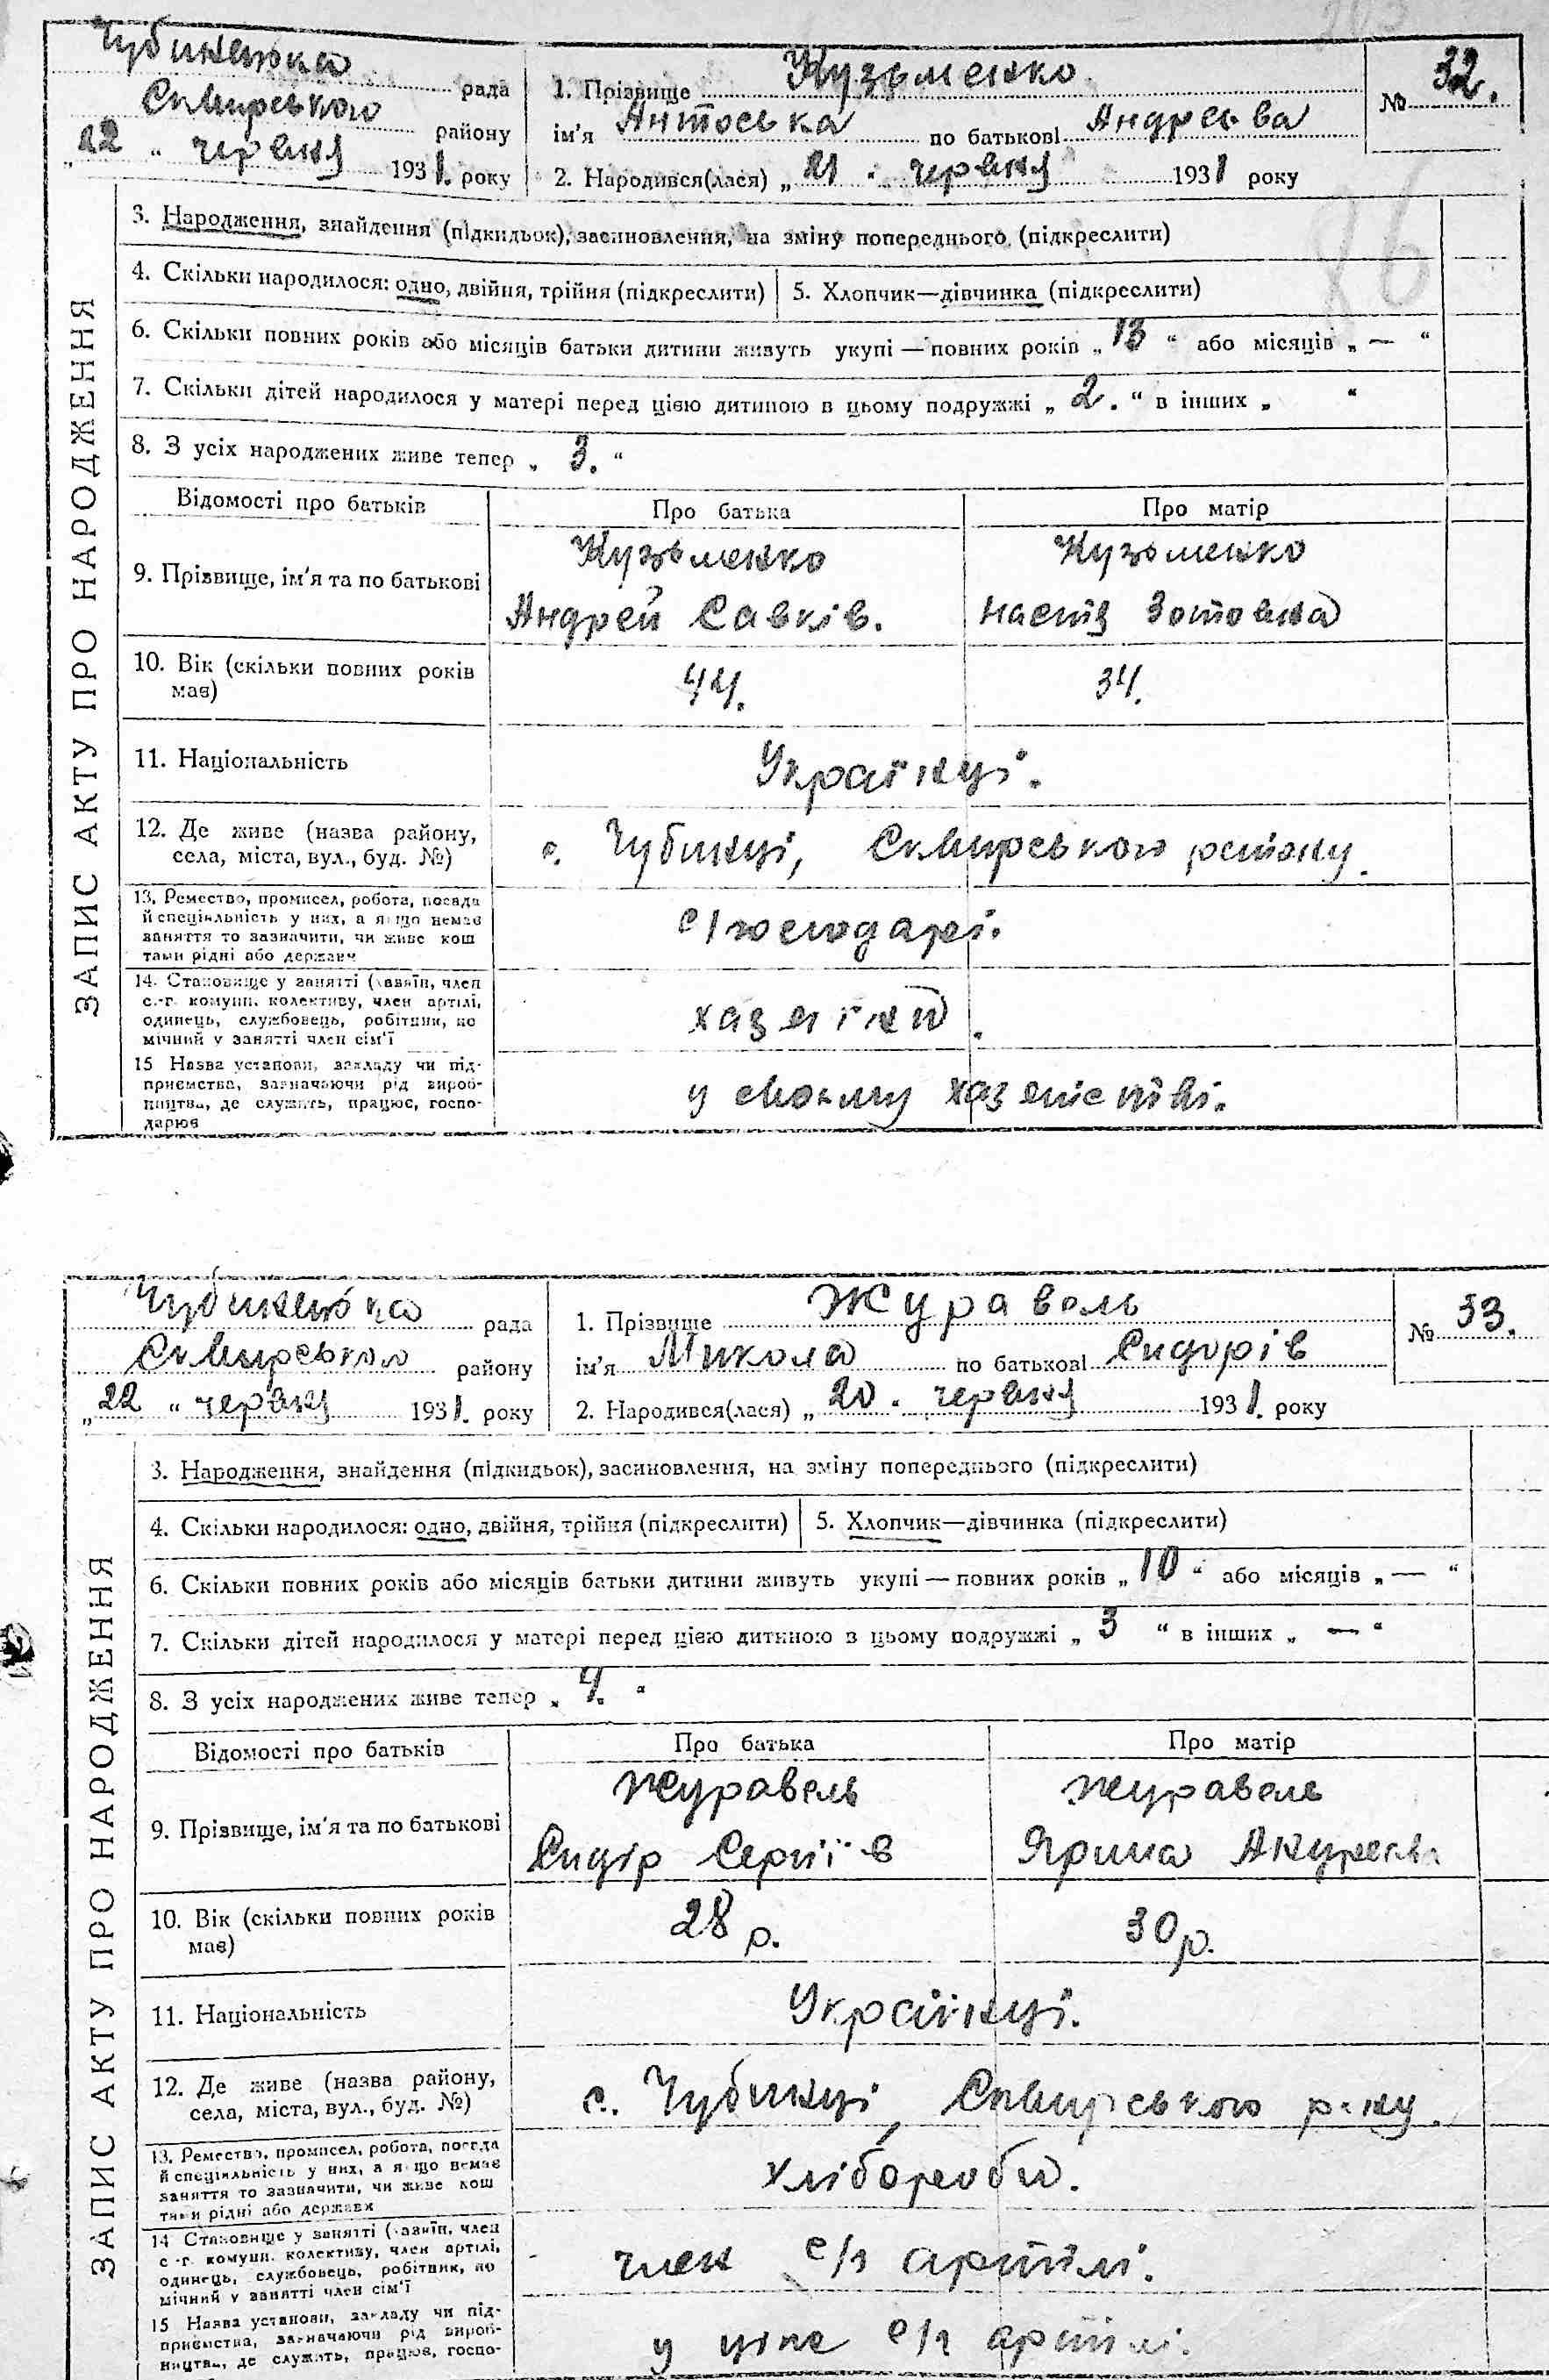 Чубинецька рада
Сквирського району
„22 “ червня 1931. року
1. Прізвище Кузьменко
ім'я Антоська по батькові Андреєва
2. Народився(лася) „21 “ червня 1931 року
№ 32.
ЗАПИС АКТУ ПРО НАРОДЖЕННЯ
3. Народження, знайдення (підкидьок), засиновлення, на зміну попереднього (підкреслити)
4. Скільки народилося: одно, двійня, трійня (підкреслити) 5. Хлопчик—дівчинка (підкреслити)
6. Скільки повних років або місяців батьки дитини живуть укупі — повних років „ 13 “ або місяців „ — “
7. Скільки дітей народилося у матері перед цією дитиною в цьому подружжі „ 2. “ в інших „ “
8. З усіх народжених живе тепер „ 3. “
Відомості про батьків Про батька Про матір
9. Прізвище, ім'я та по батькові
Кузьменко Кузьменко
Андрей Савків. Настя Зотовна
10. Вік (скільки повних років має) 44. 34.
11. Національність Українці.
12. Де живе (назва району,
села, міста, вул., буд. №) с. Чубинці, Сквирського району.
13. Ремество, промисел, робота, посада
й спеціяльність у них, а якщо немає
заняття то зазначити, чи живе кош
тами рідні або держави
с/господарі.
14. Становище у занятті (хазяїн, член
с.-г. комуни, колективу, член артілі,
одинець, службовець, робітник, по
мічний у занятті член сім'ї
15 Назва установи, закладу чи під-
приємства, зазначаючи рід вироб-
ництва, де служить, працює, госпо-
дарює
у своєму
Чубинецька рада
Сквирського району
„22 “ червня 1931. року
1. Прізвище Журавель
ім'я Микола по батькові Сидорів
2. Народився(лася) „20. червня 1931. року
№ 33.
ЗАПИС АКТУ ПРО НАРОДЖЕННЯ
3. Народження, знайдення (підкидьок), засиновлення, на зміну попереднього (підкреслити)
4. Скільки народилося: одно, двійня, трійня (підкреслити) 5. Хлопчик—дівчинка (підкреслити)
6. Скільки повних років або місяців батьки дитини живуть укупі — повних років „ 10 “ або місяців „ — “
7. Скільки дітей народилося у матері перед цією дитиною в цьому подружжі „ 3 “ в інших „ — “
8. З усіх народжених живе тепер „ 4. “
Відомості про батьків Про батька Про матір
9. Прізвище, ім'я та по батькові
Журавель Журавель
Сидір Сергіїв Ярина
10. Вік (скільки повних років має) 28 р. 30 р.
11. Національність Українці.
12. Де живе (назва району,
села, міста, вул., буд. №) с. Чубинці, Сквирського р-ну.
13. Ремество, промисел, робота, посада
й спеціяльність у них, а якщо немає
заняття то зазначити, чи живе кош
тами рідні або держави
хлібороби.
14 Становище у занятті (хазяїн, член
с.-г. комуни, колективу, член артілі,
одинець, службовець, робітник, по
мічний у занятті член сім'ї
член с/г артілі.
15 Назва установи, закладу чи під-
приємства, зазначаючи рід вироб-
ництва, де служить, працює, госпо-
у с/г артілі.